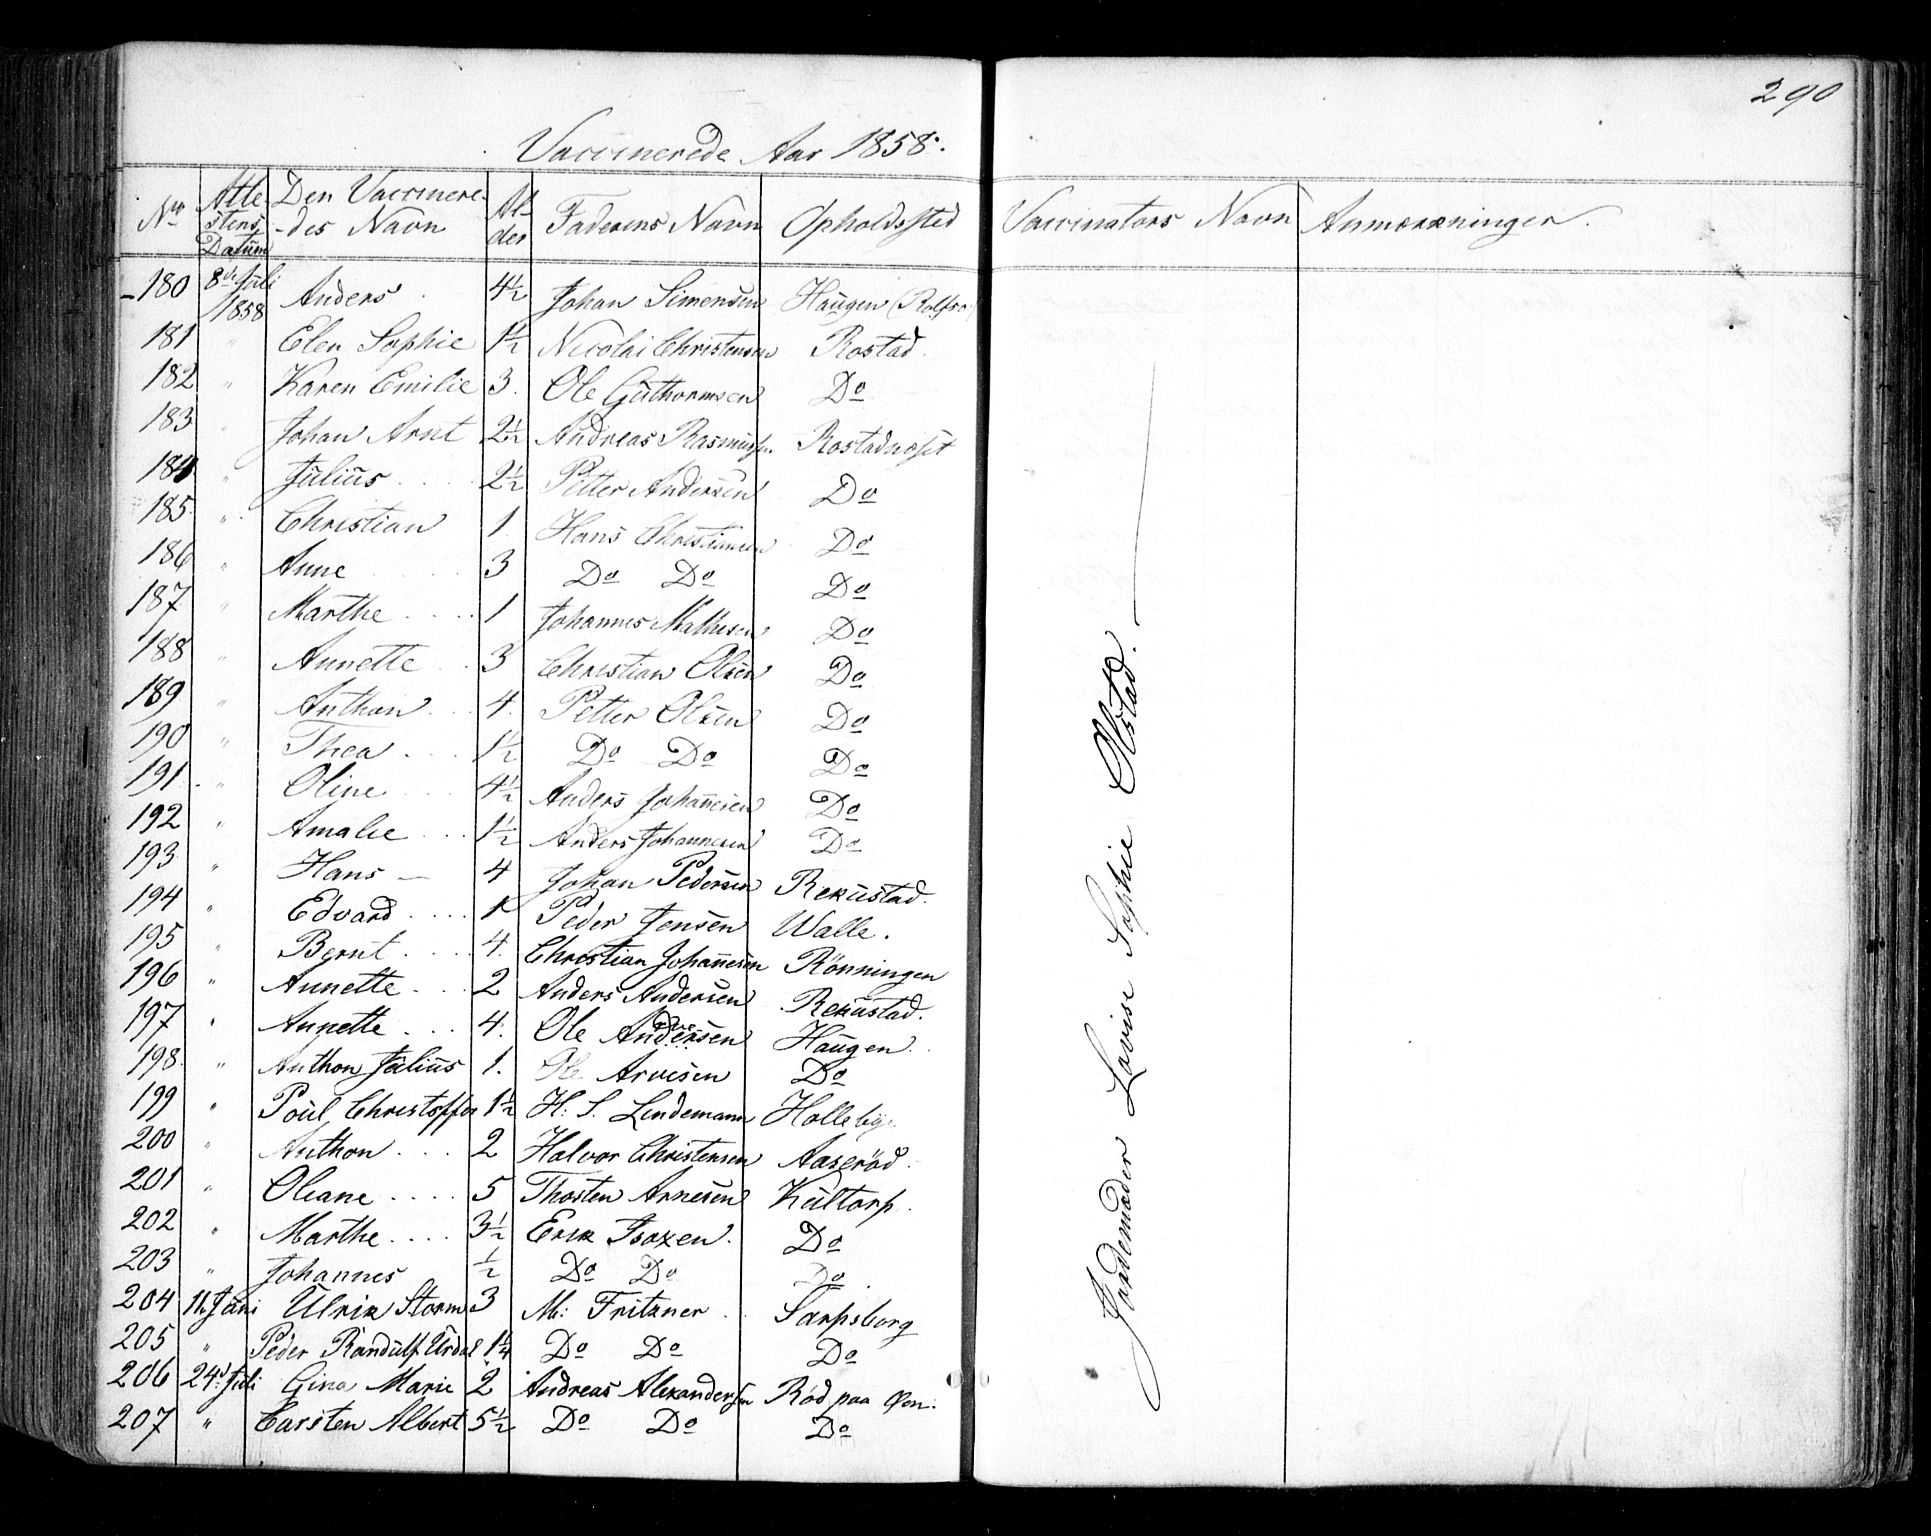 290
Vaccinerede Aar 1858.
No Atte- Den Vaccinere- Al- Faderens Navn Opholdssted Vaccinators Navn Anmærkninger.
stens -des Navn der
Datum
180 8de Juli 1858 Anders 4½ Johan Simensen Haugen (Rolfsø)
181 " Elen Sophie 1½ Nicolai Christensen Rostad
182 " Karen Emilie 3. Ole Guthormsen Do
183 Johan Arnt 2½ Andreas Rasmussen Rostad
184 " Julius 2½ Petter Andersen Do
185 " Christian 1 Hans Christiansen Do
186 " Anne 3 Do Do Do
187 " Marthe 1 Johannes Mathesen Do
188 " Annette 3 Christian Olsen Do
189 " Anthon 4. Petter Olsen Do
190 " Thea 1½ Do Do Do
191 " Oline 4½ Anders Johannesen Do
192 " Amalie 1½ Anders Johannesen Do
193 " Hans 4 Johan Pedersen Rekustad.
194 " Edvard 1 Peder Jensen Walle.
195 " Bernt 4. Christian Johannesen Rönningen
196 " Annette 2 Anders Andersen Rekustad.
197 " Annette 4. Ole Andersen Haugen.
198 " Anthon Julius 1. Ole Arvesen Do
199 " Poul Christoffer 1½ H. S. Lindemann Holleby.
200 " Anthon 2 Halvor Christensen Aaseröd
201 " Oleane 5 Thosten Arnesen Kultorp.
202 " Marthe 3½ Erik Isaxen. Do
203 " Johannes ½ Do Do Do.
204 11. Juni Ulrik Storm 3 M: Fritzner Sarpsborg
205 " Peder Randulf Urdal 1¼ Do Do Do
206 24d. Juli Gina Marie 2 Andreas Alexandersen Röd paa Øen.
207 " Carsten Albert 5½ Do Do Do
Jordemoder Lovise Sophie Olstad.